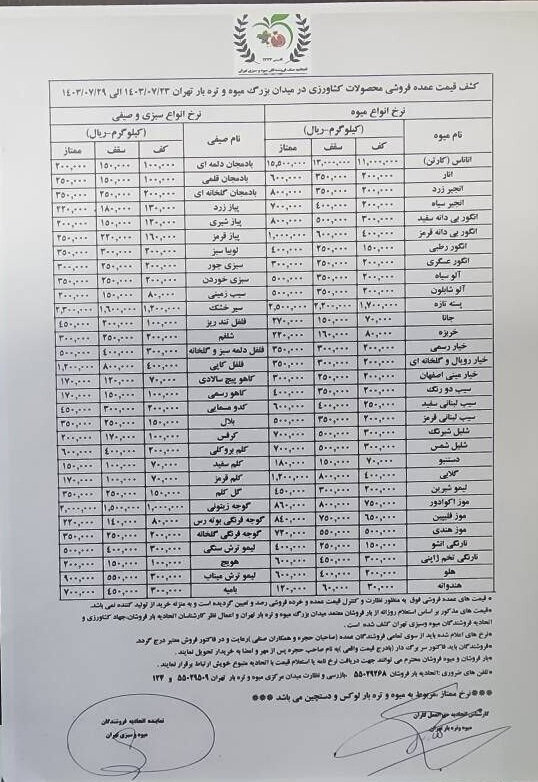 کشف قیمت عمده فروشی محصولات کشاورزی در میدان بزرگ میوه و تره بار تهران ۱۴۰۳/۰۷/۲۳ الی ۱۴۰۳/۰۷/۲۹
نرخ انواع میوه نرخ انواع سبزی و صیفی
نام میوه (کیلوگرم-ریال) نام صیفی (کیلوگرم-ریال)
کف سقف ممتاز کف سقف ممتاز
آناناس (کارتن) ۱۱,۰۰۰,۰۰۰ ۱۳,۰۰۰,۰۰۰ ۱۵,۵۰۰,۰۰۰ بادمجان دلمه ای ۱۰۰,۰۰۰ ۱۵۰,۰۰۰ ۲۰۰,۰۰۰
انار ۲۰۰,۰۰۰ ۳۵۰,۰۰۰ ۶۰۰,۰۰۰ بادمجان قلمی ۱۰۰,۰۰۰ ۱۵۰,۰۰۰ ۲۵۰,۰۰۰
انجیر زرد ۲۰۰,۰۰۰ ۳۵۰,۰۰۰ ۸۰۰,۰۰۰ بادمجان گلخانه ای ۲۰۰,۰۰۰ ۲۵۰,۰۰۰ ۳۵۰,۰۰۰
انجیر سیاه ۲۰۰,۰۰۰ ۴۰۰,۰۰۰ ۷۰۰,۰۰۰ پیاز زرد ۱۳۰,۰۰۰ ۱۸۰,۰۰۰ ۲۲۰,۰۰۰
انگور بی دانه سفید ۳۰۰,۰۰۰ ۵۰۰,۰۰۰ ۸۰۰,۰۰۰ پیاز شیری ۱۲۰,۰۰۰ ۱۵۰,۰۰۰ ۲۰۰,۰۰۰
انگور بی دانه قرمز ۴۰۰,۰۰۰ ۶۰۰,۰۰۰ ۱,۰۰۰,۰۰۰ پیاز قرمز ۱۶۰,۰۰۰ ۲۲۰,۰۰۰ ۲۵۰,۰۰۰
انگور رطبی ۱۵۰,۰۰۰ ۲۵۰,۰۰۰ ۴۰۰,۰۰۰ لوبیا سبز ۲۰۰,۰۰۰ ۳۰۰,۰۰۰ ۳۵۰,۰۰۰
انگور عسگری ۲۰۰,۰۰۰ ۲۵۰,۰۰۰ ۳۰۰,۰۰۰ سبزی جور ۲۰۰,۰۰۰ ۲۵۰,۰۰۰ ۳۰۰,۰۰۰
آلو سیاه ۲۰۰,۰۰۰ ۳۵۰,۰۰۰ ۵۰۰,۰۰۰ سبزی خوردن ۲۰۰,۰۰۰ ۲۵۰,۰۰۰ ۳۵۰,۰۰۰
آلو شابلون ۲۰۰,۰۰۰ ۳۵۰,۰۰۰ ۵۰۰,۰۰۰ سیب زمینی ۸۰,۰۰۰ ۱۵۰,۰۰۰ ۲۰۰,۰۰۰
پسته تازه ۱,۷۰۰,۰۰۰ ۲,۲۰۰,۰۰۰ ۲,۵۰۰,۰۰۰ سیر خشک ۱,۲۰۰,۰۰۰ ۱,۶۰۰,۰۰۰ ۲,۳۰۰,۰۰۰
جانا ۷۰,۰۰۰ ۱۵۰,۰۰۰ ۲۷۰,۰۰۰ فلفل تند ریز ۱۰۰,۰۰۰ ۲۰۰,۰۰۰ ۴۵۰,۰۰۰
خربزه ۸۰,۰۰۰ ۱۶۰,۰۰۰ ۲۲۰,۰۰۰ شلغم ۲۰۰,۰۰۰ ۲۵۰,۰۰۰ ۳۰۰,۰۰۰
خیار رسمی ۲۰۰,۰۰۰ ۳۰۰,۰۰۰ ۳۵۰,۰۰۰ فلفل دلمه سبز و گلخانه ۳۰۰,۰۰۰ ۴۰۰,۰۰۰ ۵۰۰,۰۰۰
خیار رویال و گلخانه ای ۲۰۰,۰۰۰ ۳۰۰,۰۰۰ ۳۵۰,۰۰۰ فلفل کاپی ۴۰۰,۰۰۰ ۸۰۰,۰۰۰ ۱,۲۰۰,۰۰۰
خیار مینی اصفهان ۲۰۰,۰۰۰ ۲۵۰,۰۰۰ ۳۰۰,۰۰۰ کاهو پیچ سالادی ۷۰,۰۰۰ ۱۲۰,۰۰۰ ۱۷۰,۰۰۰
سیب دو رنگ ۲۰۰,۰۰۰ ۳۵۰,۰۰۰ ۴۰۰,۰۰۰ کاهو رسمی ۱۰۰,۰۰۰ ۱۵۰,۰۰۰ ۱۷۰,۰۰۰
سیب لبنانی سفید ۲۵۰,۰۰۰ ۴۰۰,۰۰۰ ۶۰۰,۰۰۰ کدو مسمایی ۲۰۰,۰۰۰ ۳۰۰,۰۰۰ ۴۵۰,۰۰۰
سیب لبنانی قرمز ۲۰۰,۰۰۰ ۳۵۰,۰۰۰ ۵۰۰,۰۰۰ بلال ۱۵۰,۰۰۰ ۲۵۰,۰۰۰ ۳۵۰,۰۰۰
شلیل شبرنگ ۳۰۰,۰۰۰ ۵۰۰,۰۰۰ ۷۰۰,۰۰۰ کرفس ۱۰۰,۰۰۰ ۱۷۰,۰۰۰ ۲۰۰,۰۰۰
شلیل شمس ۳۰۰,۰۰۰ ۵۰۰,۰۰۰ ۷۰۰,۰۰۰ کلم بروکلی ۲۰۰,۰۰۰ ۴۰۰,۰۰۰ ۶۰۰,۰۰۰
دستنبو ۷۰,۰۰۰ ۱۵۰,۰۰۰ ۱۸۰,۰۰۰ کلم سفید ۷۰,۰۰۰ ۱۰۰,۰۰۰ ۱۵۰,۰۰۰
گلابی ۴۰۰,۰۰۰ ۸۰۰,۰۰۰ ۱,۲۰۰,۰۰۰ کلم قرمز ۷۰,۰۰۰ ۱۰۰,۰۰۰ ۱۷۰,۰۰۰
لیمو شیرین ۲۰۰,۰۰۰ ۳۰۰,۰۰۰ ۴۵۰,۰۰۰ گل کلم ۱۵۰,۰۰۰ ۲۵۰,۰۰۰ ۳۵۰,۰۰۰
موز اکوادور ۷۵۰,۰۰۰ ۸۰۰,۰۰۰ ۸۶۰,۰۰۰ گوجه زیتونی ۱,۰۰۰,۰۰۰ ۱,۵۰۰,۰۰۰ ۲,۰۰۰,۰۰۰
موز فلیپین ۶۵۰,۰۰۰ ۷۵۰,۰۰۰ ۸۴۰,۰۰۰ گوجه فرنگی بوته رس ۸۰,۰۰۰ ۱۴۰,۰۰۰ ۲۲۰,۰۰۰
موز هندی ۵۰۰,۰۰۰ ۵۵۰,۰۰۰ ۷۲۰,۰۰۰ گوجه فرنگی گلخانه ۲۰۰,۰۰۰ ۲۵۰,۰۰۰ ۳۵۰,۰۰۰
نارنگی انشو ۱۵۰,۰۰۰ ۲۵۰,۰۰۰ ۳۰۰,۰۰۰ لیمو ترش سنگی ۳۰۰,۰۰۰ ۴۰۰,۰۰۰ ۵۰۰,۰۰۰
نارنگی تخم ژاپنی ۳۰۰,۰۰۰ ۴۰۰,۰۰۰ ۶۰۰,۰۰۰ هویج ۱۰۰,۰۰۰ ۱۵۰,۰۰۰ ۲۰۰,۰۰۰
هلو ۲۰۰,۰۰۰ ۴۰۰,۰۰۰ ۶۰۰,۰۰۰ لیمو ترش میناب ۳۰۰,۰۰۰ ۵۵۰,۰۰۰ ۹۰۰,۰۰۰
هندوانه ۳۰,۰۰۰ ۶۰,۰۰۰ ۱۲۰,۰۰۰ بامیه ۳۰۰,۰۰۰ ۴۵۰,۰۰۰ ۷۰۰,۰۰۰
* قیمت های عمده فروشی فوق به منظور نظارت و کنترل قیمت عمده و خرده فروشی رصد و تعیین گردیده است و به منزله خرید از تولید کننده نمی باشد.
* قیمت های مذکور بر اساس استعلام روزانه از بار فروشان معتمد میدان بزرگ میوه و تره بار تهران و اعمال نظر کارشناسان اتحادیه بار فروشان،جهاد کشاورزی و
اتحادیه فروشندگان میوه وسبزی تهران کشف شده است .
* نرخ های اعلام شده باید از سوی تمامی فروشندگان عمده (صاحبان حجره و همکاران صنفی )رعایت و در فاکتور فروش معتبر درج گردد.
* فروشندگان باید فاکتور سر برگ دار (بادرج قیمت واقعی )به نام صاحب حجره پس از مهر و امضا به خریدار تحویل نمایند.
* بار فروشان و میوه فروشان محترم می توانند جهت دریافت نرخ نامه یا استعلام قیمت با اتحادیه متبوع خویش ارتباط برقرار نمایند.
* تلفن های ضروری : اتحادیه بار فروشان ۵۵۰۲۹۲۶۸ ,بازرسی و نظارت میدان مرکزی میوه و تره بار تهران ۵۵۰۲۹۵۰۹ و ۱۲۴
***نرخ ممتاز ،مربوط به میوه و تره بار لوکس و دستچین می باشد ***
نماینده اتحادیه فروشندگان
میوه و سبزی تهران
میوه و تره بار تهران